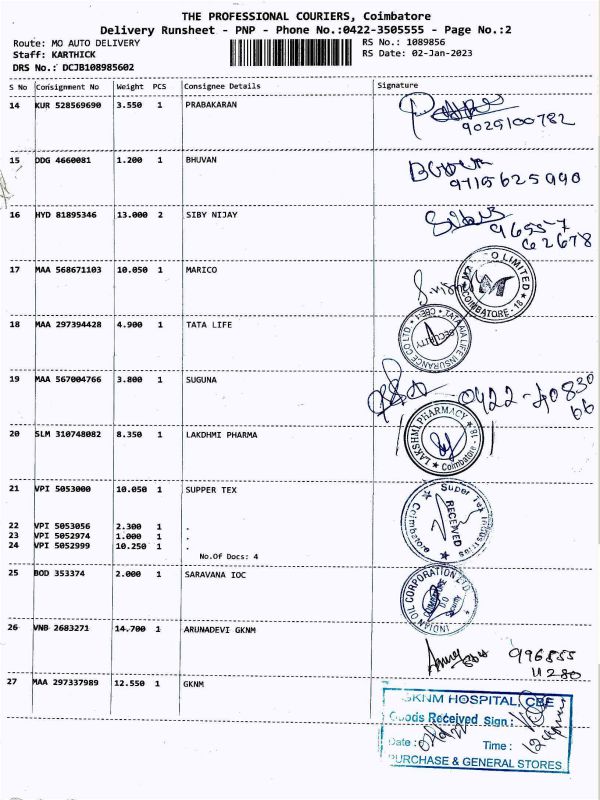 THE PROFESSIONAL COURIERS, Coimbatore
Delivery Runsheet - PNP - Phone No.:0422-3505555 - Page No.:2
Route: MO AUTO DELIVERY RS No.: 1089856
Staff: KARTHICK RS Date: 02-Jan-2023
DRS No.: DCJB108985602
S No Consignment No Weight PCS Consignee Details Signature
14 KUR 528569690 3.550 1 PRABAKARAN
9029100782
15 DDG 4660081 1.200 1 BHUVAN
9715625990
16 HYD 81895346 13.000 2 SIBY NIJAY
96557
62678
17 MAA 568671103 10.050 1 MARICO
O LIMITED
COIMBATORE - 18
18 MAA 297394428 4.900 1 TATA LIFE
TATA AIA LIFE INSURANCE CO LTD. CBE-1
SECURITY
19 MAA 567004766 3.800 1 SUGUNA
0422-40830
66
20 SLM 310748082 8.350 1 LAKDHMI PHARMA
LAKSHMI PHARMACY
Coimbatore - 18
21 VPI 5053000 10.050 1 SUPPER TEX
Super Tex Industries
RECEIVED
Coimbatore
22 VPI 5053056 2.300 1 .
23 VPI 5052974 1.000 1 .
24 VPI 5052999 10.250 1 .
No.Of Docs: 4
25 BOD 353374 2.000 1 SARAVANA IOC
INDIAN OIL CORPORATION LTD
COIMBATORE
D.O
Security
26 VNB 2683271 14.700 1 ARUNADEVI GKNM
996855
11280
27 MAA 297337989 12.550 1 GKNM
GKNM HOSPITAL, CBE
Goods Received Sign :
Date : Time :
PURCHASE & GENERAL STORES